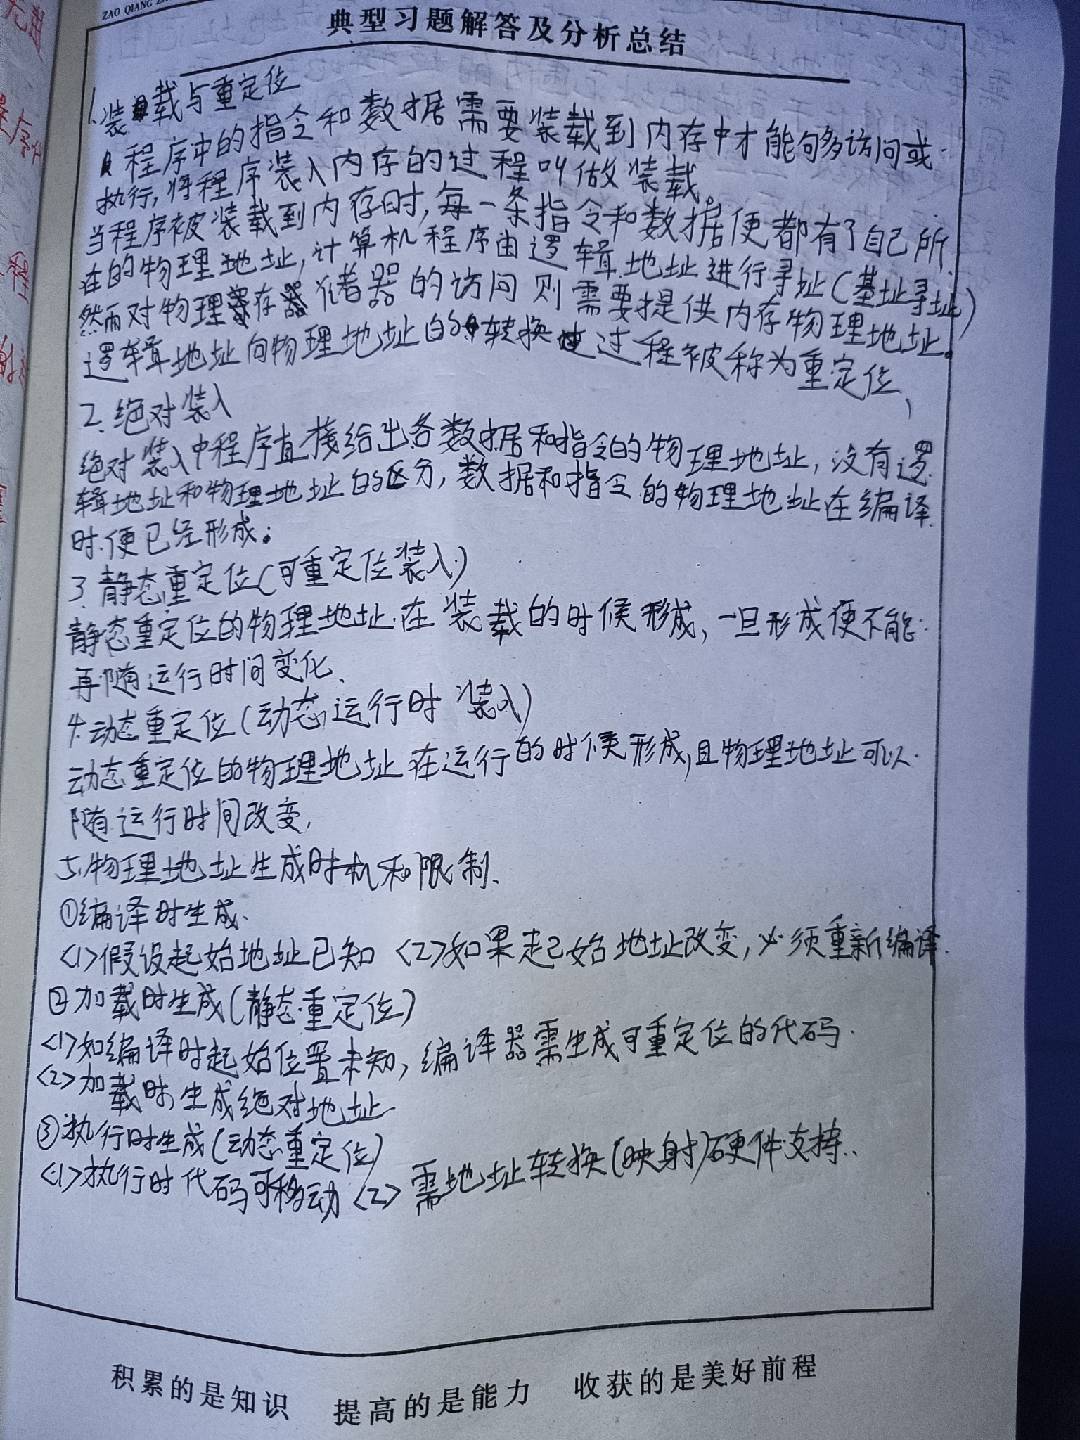 ZAO QIANG
典型习题解答及分析总结
1.装载与重定位
程序中的指令和数据需要装载到内存中才能够访问或
执行,将程序装入内存的过程叫做装载。
当程序被装载到内存时,每一条指令和数据便都有了自己所
在的物理地址,计算机程序由逻辑地址进行寻址(基址寻址)
然而对物理存储器的访问则需要提供内存物理地址。
逻辑地址向物理地址的转换过程被称为重定位、
2.绝对装入
绝对装入中程序直接给出各数据和指令的物理地址,没有逻
辑地址和物理地址的区分,数据和指令的物理地址在编译
时便已经形成。
3.静态重定位(可重定位装入)
静态重定位的物理地址在装载的时候形成,一旦形成便不能
再随运行时间变化、
4.动态重定位(动态运行时装入)
动态重定位的物理地址在运行的时候形成,且物理地址可以
随运行时间改变,
5.物理地址生成时机和限制、
①编译时生成、
<1>假设起始地址已知 <2>如果起始地址改变,必须重新编译
②加载时生成(静态重定位)
<1>如编译时起始位置未知,编译器需生成可重定位的代码
<2>加载时,生成绝对地址
③执行时生成(动态重定位)
<1>执行时代码可移动 <2>需地址转换(映射)硬件支持..
积累的是知识 提高的是能力 收获的是美好前程